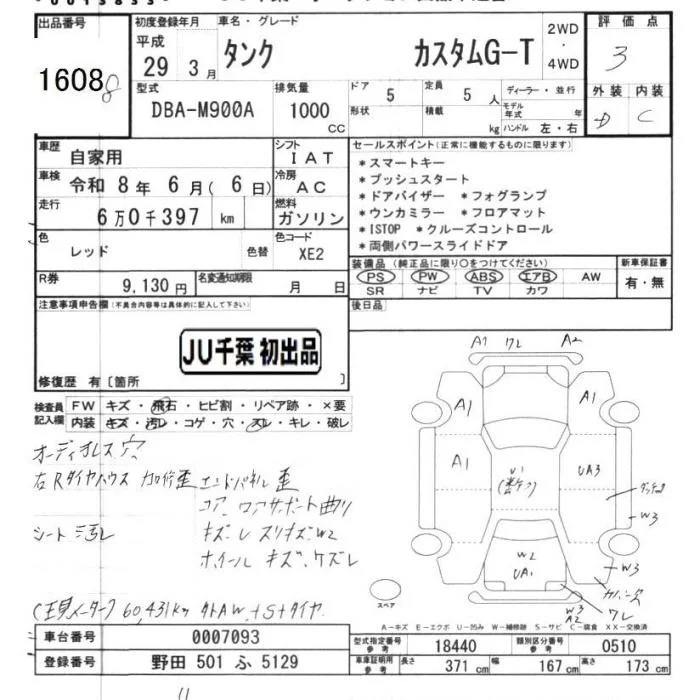 出品番号
16088
初度登録年月
平成
29 3 月
車名・グレード
タンク カスタムG-T
2WD
・
4WD
評価点
3
外装 内装
D C
型式
DBA-M900A
排気量
1000
CC
ドア 5
形状
定員 5 人
積載 kg
ディーラー・並行
モデル年式 年
ハンドル 左・右
車歴 自家用
シフト
IAT
車検 令和 8年 6月( 6日)
冷房
AC
走行 6万0千397 km
燃料
ガソリン
色 レッド 色替
色コード
XE2
R券 9,130円
名変通知期限 月 日
セールスポイント(正常に機能するものに限ります)
*スマートキー
*プッシュスタート
*ドアバイザー *フォグランプ
*ウンカミラー *フロアマット
*ISTOP *クルーズコントロール
*両側パワースライドドア
装備品 (純正品に限り○をつけてください)
PS PW ABS エアB AW
SR ナビ TV カワ
新車保証書
有・無
後日品
注意事項申告欄(不具合内容等は具体的に記入して下さい)
JU千葉 初出品
修復歴 有〔箇所 〕
検査員
記入欄
FW キズ・飛石・ヒビ割・リペア跡・×要
内装 キズ・汚レ・コゲ・穴・スレ・キレ・破レ
オーディオレス穴
右Rタイヤハウス 加修歪 エンドパネル歪
コア、ロアサポート曲り
キズ・レ スリキズW2
シート汚レ
ホイールキズ、ケズレ
60,431km
A1 ワレ A2
A1 A1
A1 U1 UA3
W3
W2
UA1
W3
W3
A2
ワレ
スペア
A-キズ E-エクボ U-凹み W-補修跡 S-サビ C-腐食 XX-交換済
車台番号 0007093
登録番号 野田 501 ふ 5129
型式指定番号
参考
18440
類別区分番号
参考
0510
車庫証明用
参考
長さ 371 cm 幅 167 cm 高さ 173 cm